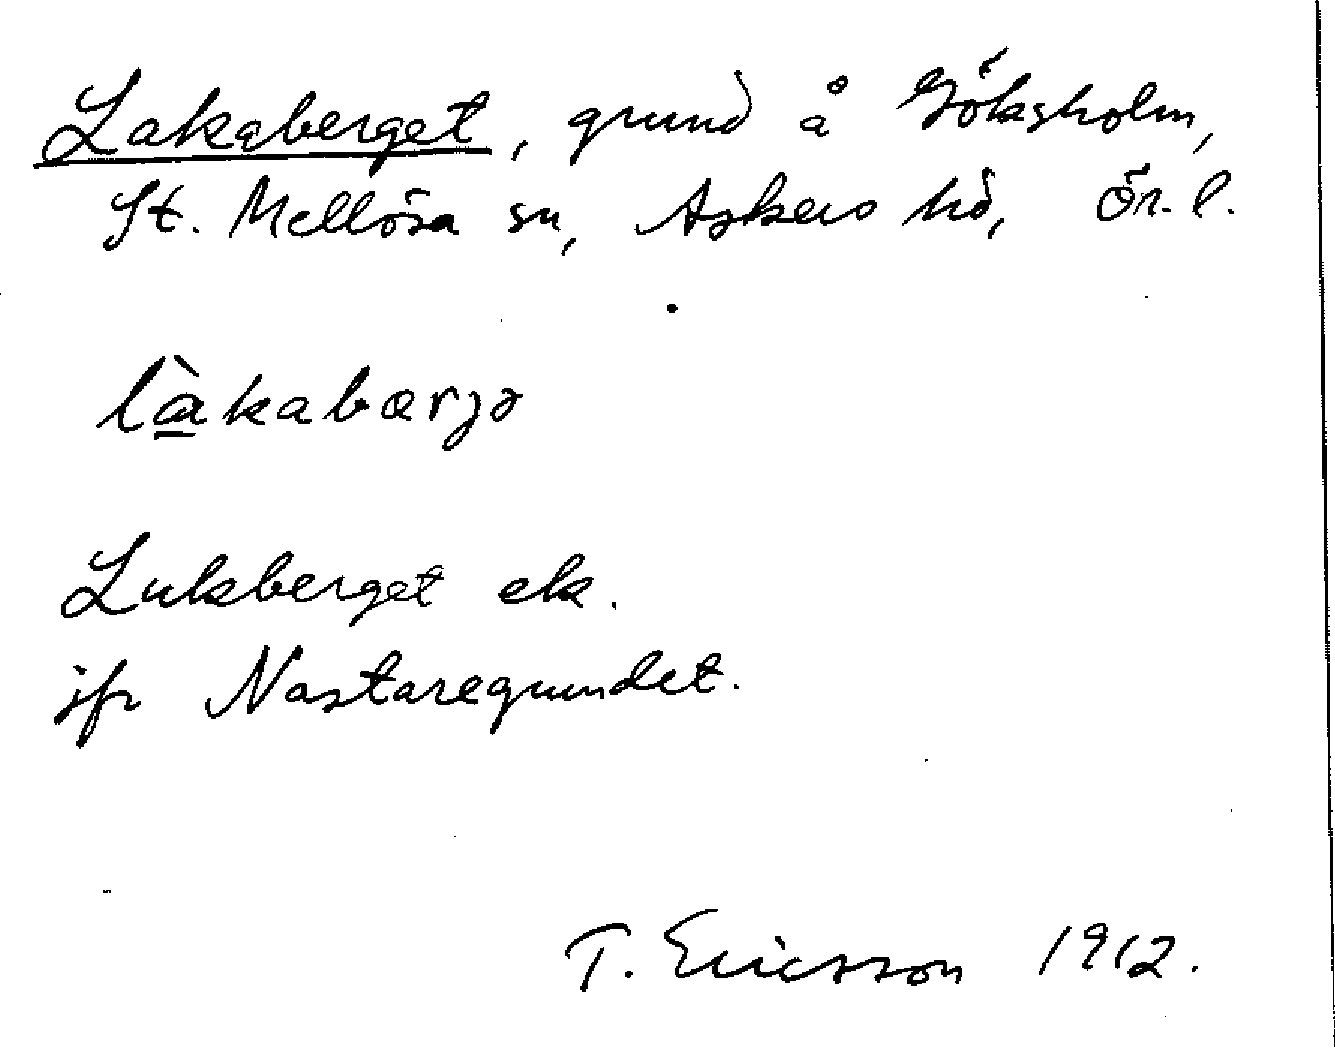 Lakaberget, grund å Göksholm,
St. Mellösa sn, Askers hd, Ör. l.
là̱kabærjə
Lukberget ek.
jfr Nastaregrundet.
T. Ericsson 1912.